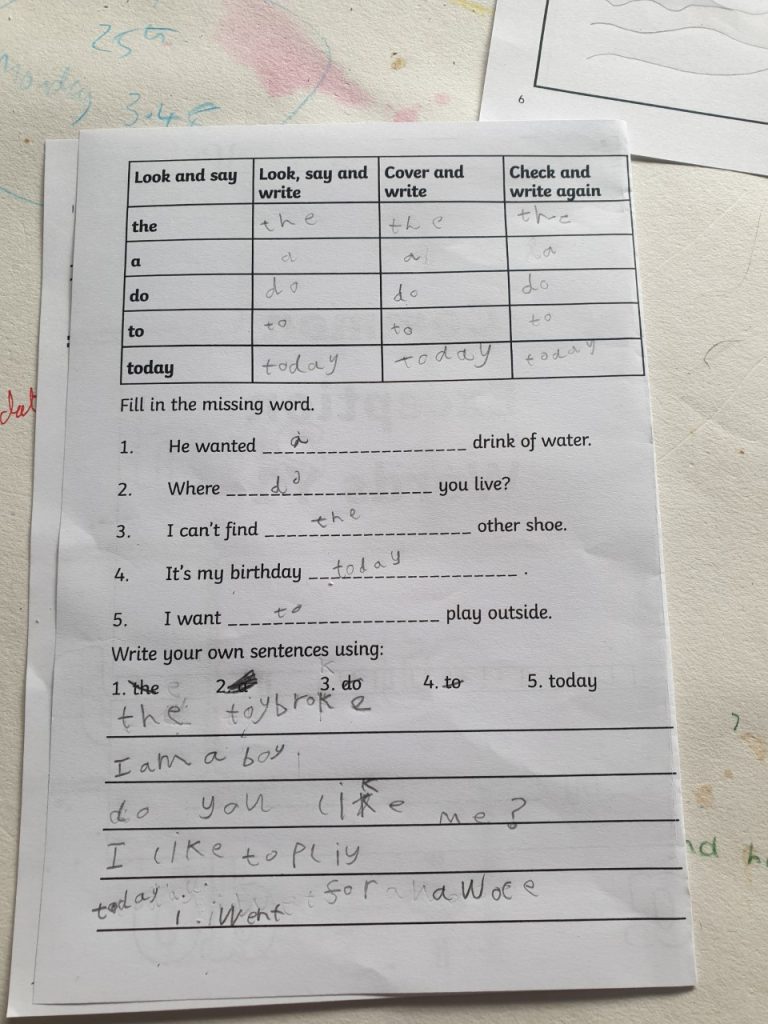 25th
Monday
3.45
6
Look and say Look, say and write Cover and write Check and write again
the the the the
a a a a
do do do do
to to to to
today today today today
dat
Fill in the missing word.
1. He wanted a drink of water.
2. Where do you live?
3. I can't find the other shoe.
4. It's my birthday today.
5. I want to play outside.
Write your own sentences using:
1. the 2. a 3. do 4. to 5. today
the toybroke
I am a boy.
do you like me?
I like to pliy
today I went for a woce